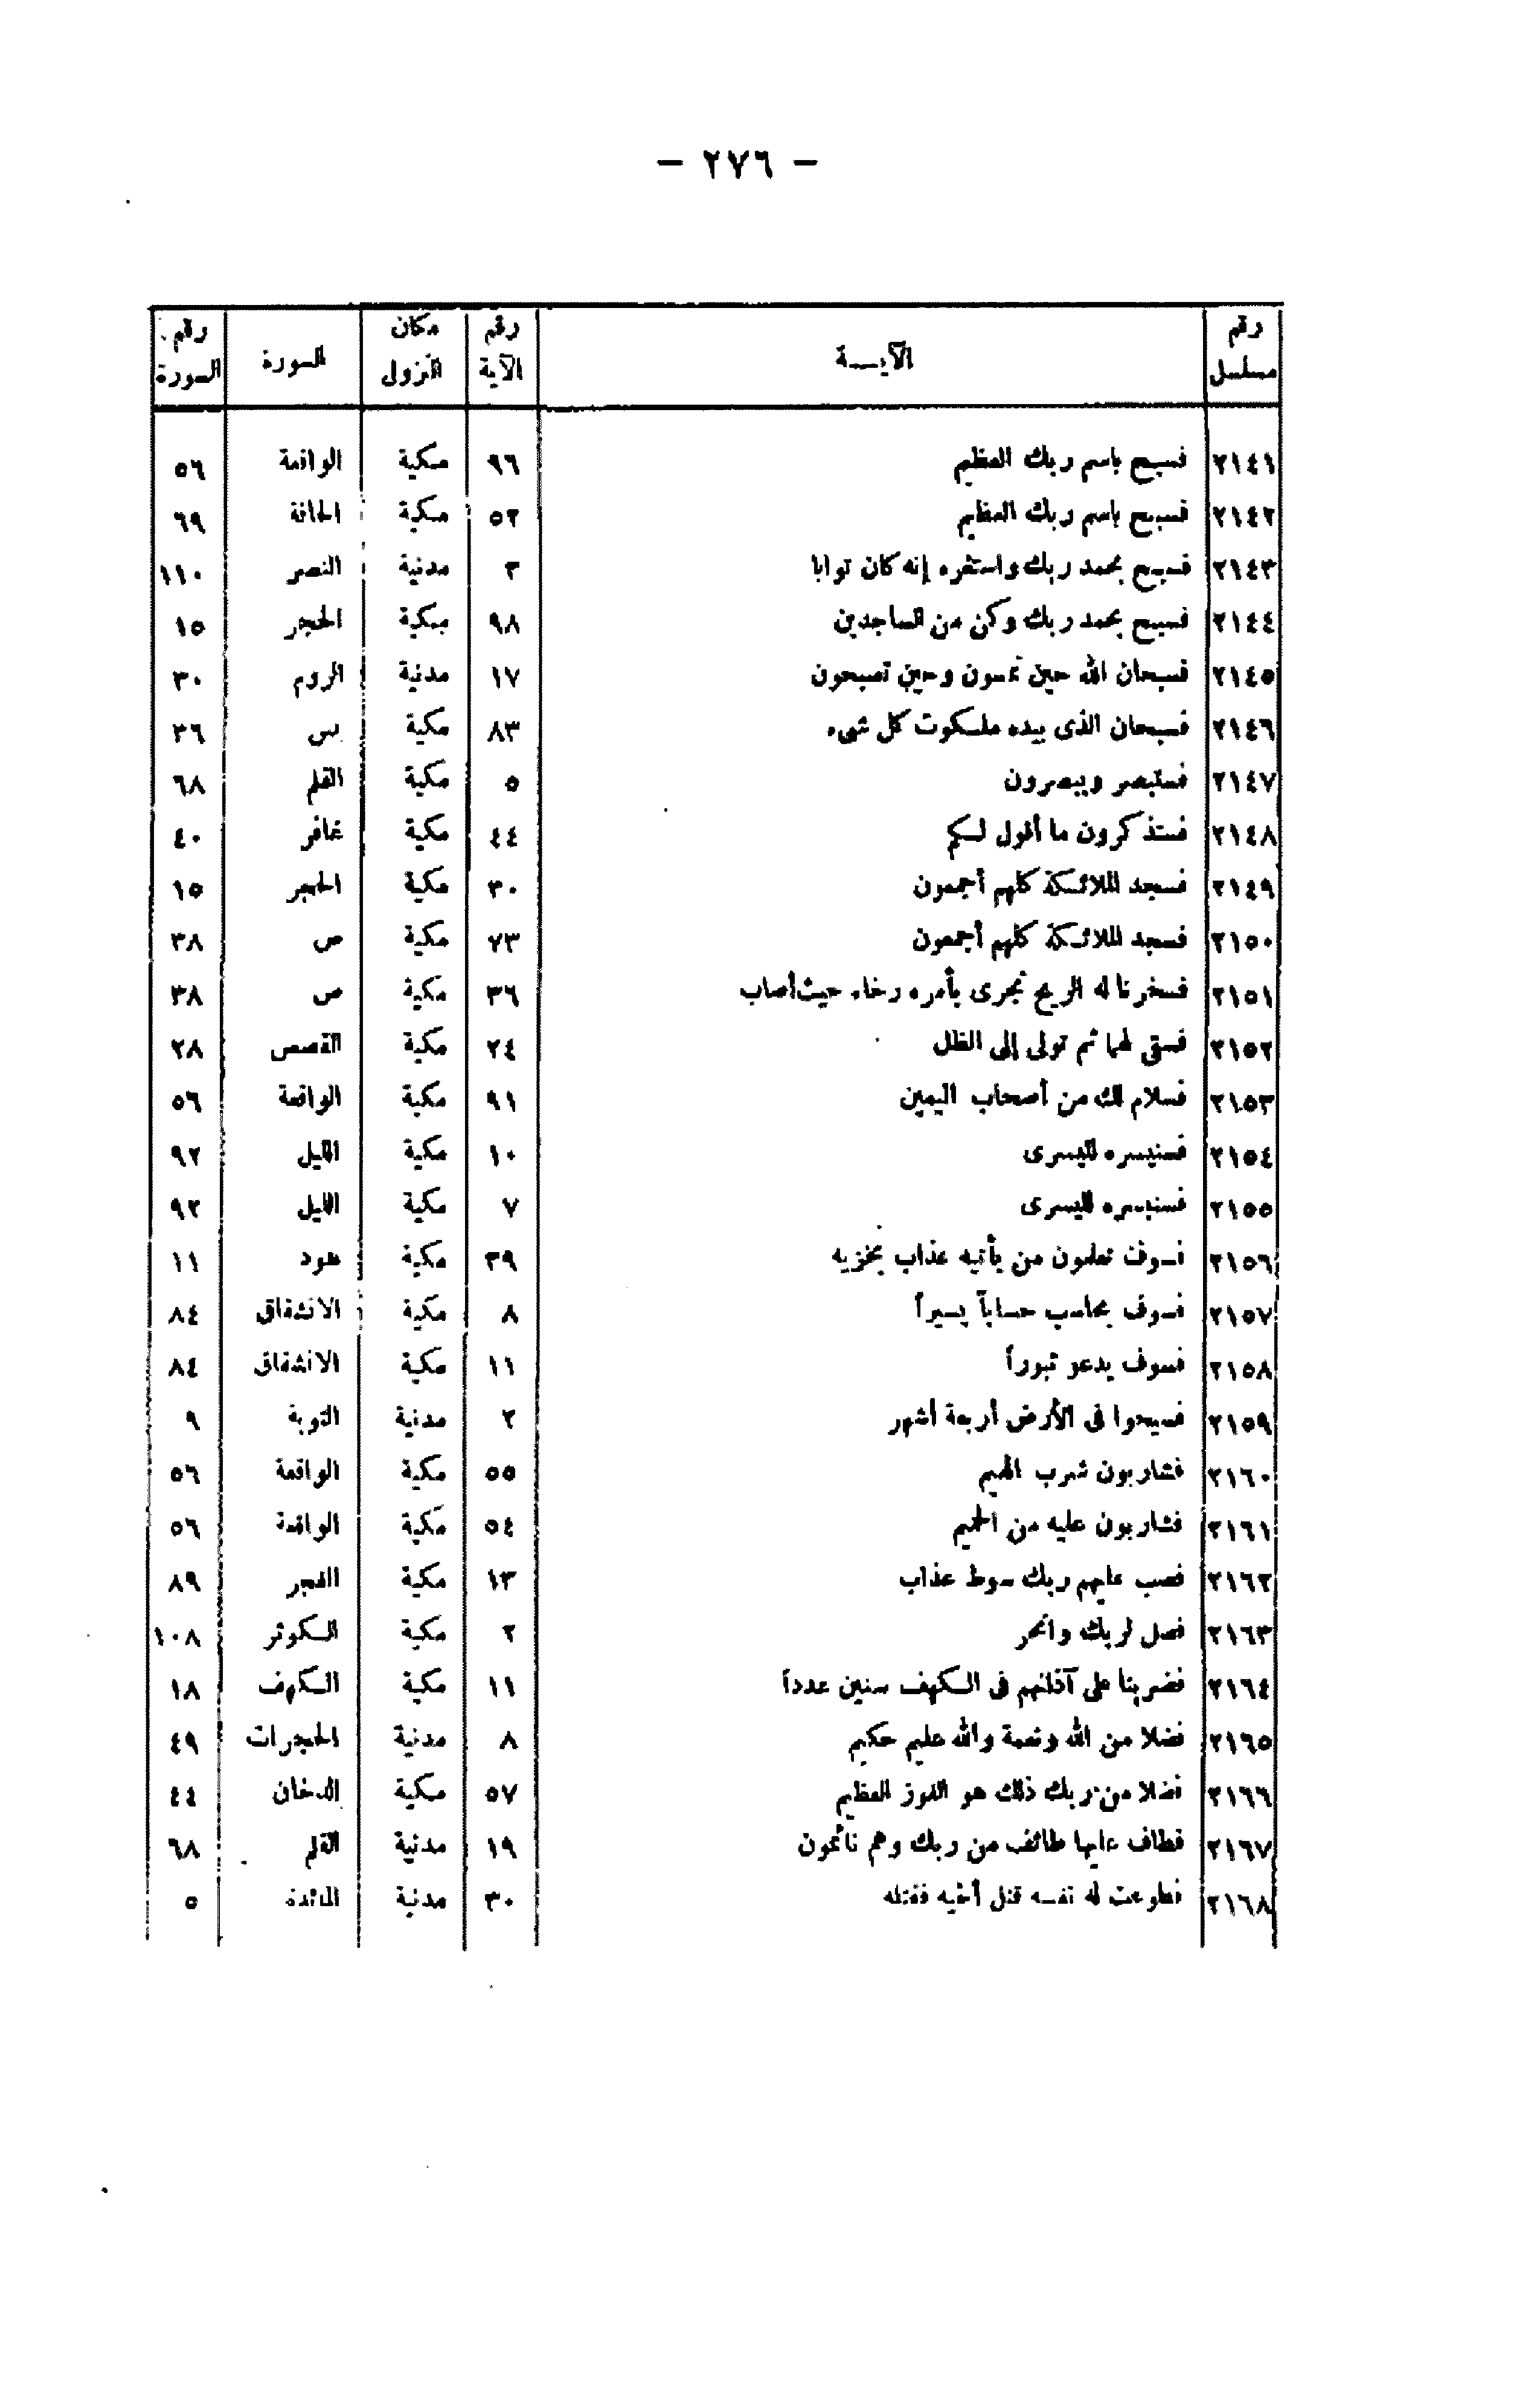 — ٢٧٦ —
رقم مسلسل | الآيــة | رقم الآية | مكان النزول | السورة | رقم السورة
٢١٤١ | فسبح باسم ربك العظيم | ٩٦ | مكية | الواقعة | ٥٦
٢١٤٢ | فسبح باسم ربك العظيم | ٥٢ | مكية | الحاقة | ٦٩
٢١٤٣ | فسبح بحمد ربك واستغفره إنه كان توابا | ٣ | مدنية | النصر | ١١٠
٢١٤٤ | فسبح بحمد ربك وكن من الساجدين | ٩٨ | مكية | الحجر | ١٥
٢١٤٥ | فسبحان الله حين تمسون وحين تصبحون | ١٧ | مدنية | الروم | ٣٠
٢١٤٦ | فسبحان الذى بيده ملكوت كل شىء | ٨٣ | مكية | يس | ٣٦
٢١٤٧ | فستبصر ويبصرون | ٥ | مكية | القلم | ٦٨
٢١٤٨ | فستذكرون ما أقول لكم | ٤٤ | مكية | غافر | ٤٠
٢١٤٩ | فسجد الملائكة كلهم أجمعون | ٣٠ | مكية | الحجر | ١٥
٢١٥٠ | فسجد الملائكة كلهم أجمعون | ٧٣ | مكية | ص | ٣٨
٢١٥١ | فسخرنا له الريح تجرى بأمره رخاء حيث أصاب | ٣٦ | مكية | ص | ٣٨
٢١٥٢ | فسقى لهما ثم تولى إلى الظل | ٢٤ | مكية | القصص | ٢٨
٢١٥٣ | فسلام لك من أصحاب اليمين | ٩١ | مكية | الواقعة | ٥٦
٢١٥٤ | فسنيسره لليسرى | ١٠ | مكية | الليل | ٩٢
٢١٥٥ | فسنيسره لليسرى | ٧ | مكية | الليل | ٩٢
٢١٥٦ | فسوف تعلمون من يأتيه عذاب يخزيه | ٣٩ | مكية | هود | ١١
٢١٥٧ | فسوف يحاسب حساباً يسيراً | ٨ | مكية | الانشقاق | ٨٤
٢١٥٨ | فسوف يدعو ثبوراً | ١١ | مكية | الانشقاق | ٨٤
٢١٥٩ | فسيحوا فى الأرض أربعة أشهر | ٢ | مدنية | التوبة | ٩
٢١٦٠ | فشاربون شرب الهيم | ٥٥ | مكية | الواقعة | ٥٦
٢١٦١ | فشاربون عليه من الحميم | ٥٤ | مكية | الواقعة | ٥٦
٢١٦٢ | فصب عليهم ربك سوط عذاب | ١٣ | مكية | الفجر | ٨٩
٢١٦٣ | فصل لربك وانحر | ٢ | مكية | الكوثر | ١٠٨
٢١٦٤ | فضربنا على آذانهم فى الكهف سنين عدداً | ١١ | مكية | الكهف | ١٨
٢١٦٥ | فضلا من الله ونعمة والله عليم حكيم | ٨ | مدنية | الحجرات | ٤٩
٢١٦٦ | فضلا من ربك ذلك هو الفوز العظيم | ٥٧ | مكية | الدخان | ٤٤
٢١٦٧ | فطاف عليها طائف من ربك وهم نائمون | ١٩ | مدنية | القلم | ٦٨
٢١٦٨ | فطوعت له نفسه قتل أخيه فقتله | ٣٠ | مدنية | المائدة | ٥